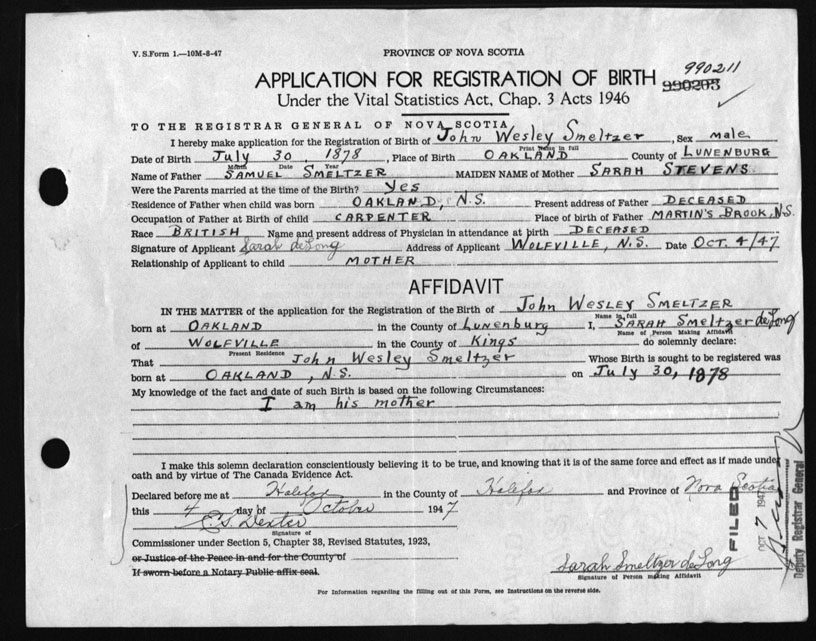 V. S. Form 1.—10M-8-47
PROVINCE OF NOVA SCOTIA
990211
APPLICATION FOR REGISTRATION OF BIRTH 990203
Under the Vital Statistics Act, Chap. 3 Acts 1946
TO THE REGISTRAR GENERAL OF NOVA SCOTIA
I hereby make application for the Registration of Birth of John Wesley Smeltzer, Sex male
Print Name in full
Date of Birth July 30, 1878, Place of Birth OAKLAND County of LUNENBURG
Month Date Year
Name of Father SAMUEL SMELTZER MAIDEN NAME of Mother SARAH STEVENS
Were the Parents married at the time of the Birth? Yes
Residence of Father when child was born OAKLAND, N.S. Present address of Father DECEASED
Occupation of Father at Birth of child CARPENTER Place of birth of Father MARTIN'S BROOK, N.S.
Race BRITISH Name and present address of Physician in attendance at birth DECEASED
Signature of Applicant Sarah deLong Address of Applicant WOLFVILLE, N.S. Date OCT. 4/47
Relationship of Applicant to child MOTHER
AFFIDAVIT
IN THE MATTER of the application for the Registration of the Birth of John WESLEY SMELTZER
Name in full
born at OAKLAND in the County of Lunenburg I, SARAH Smeltzer deLong
Name of Person Making Affidavit
of WOLFVILLE in the County of Kings do solemnly declare:
Present Residence
That John Wesley Smeltzer Whose Birth is sought to be registered was
born at OAKLAND, N.S. on July 30, 1878
My knowledge of the fact and date of such Birth is based on the following Circumstances:
I am his mother
I make this solemn declaration conscientiously believing it to be true, and knowing that it is of the same force and effect as if made under
oath and by virtue of The Canada Evidence Act.
Declared before me at Halifax in the County of Halifax and Province of Nova Scotia
this 4 day of October 1947
Dexter
Signature of
Commissioner under Section 5, Chapter 38, Revised Statutes, 1923,
or Justice of the Peace in and for the County of
If sworn before a Notary Public affix seal.
Sarah Smeltzer deLong
Signature of Person making Affidavit
For Information regarding the filling out of this Form, see Instructions on the reverse side.
FILED
OCT 7 1947
Deputy Registrar General